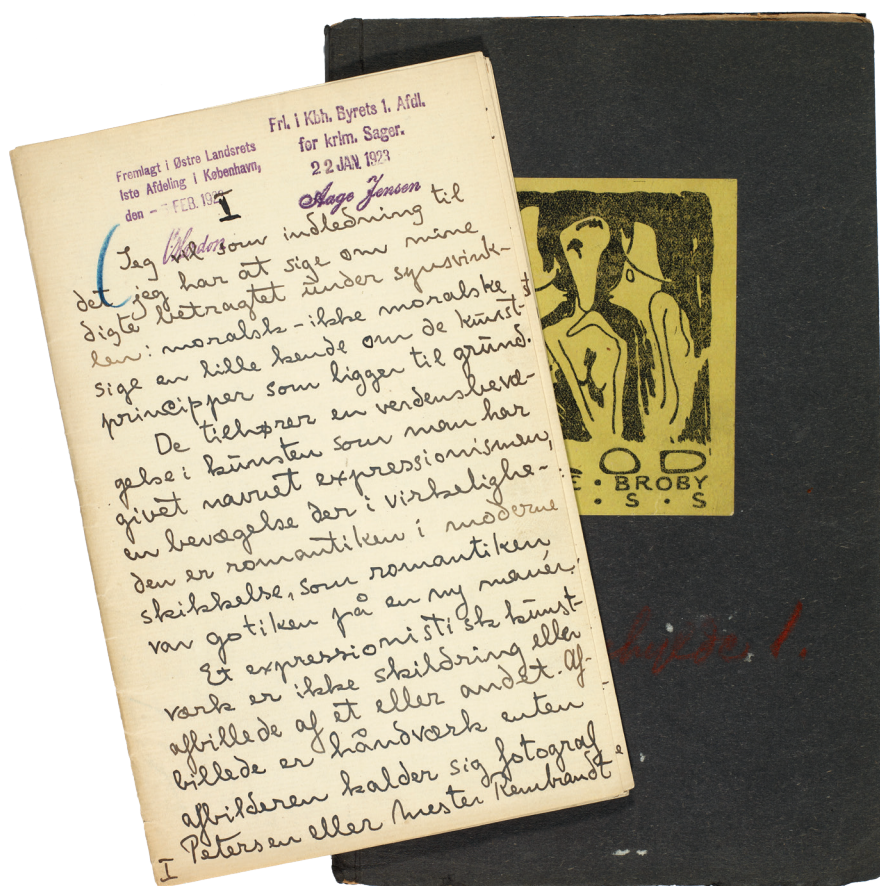 Fremlagt i Østre Landsrets
1ste Afdeling i København,
den - FEB. 192
Frl. i Kbh. Byrets 1. Afdl.
for krim. Sager.
22 JAN. 1923
Aage Jensen
I
Jeg vil som indledning til
det jeg har at sige om mine
digte betragtet under synsvink-
len: moralsk - ikke moralske
sige en lille kende om de kunst-
principper som ligger til grund.
De tilhører en verdensbevæ-
gelse i kunsten som man har
givet navnet expressionismen,
en bevægelse der i virkelighe-
den er romantiken i moderne
skikkelse, som romantiken
var gotiken på en ny manér.
Et expressionistisk kunst-
værk er ikke skildring eller
afbillede af et eller andet. Af-
billede er håndværk enten
afbilderen kalder sig fotograf
Petersen eller mester Rembrandt
I
OD
E · BROBY
· S · S
1.